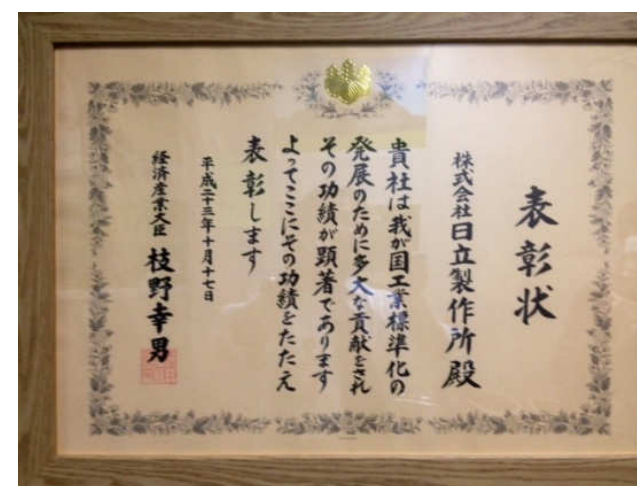 表彰状
株式会社日立製作所殿
貴社は我が国工業標準化の
発展のために多大な貢献をされ
その功績が顕著であります
よってここにその功績をたたえ
表彰します
平成二十三年十月十七日
経済産業大臣 枝野幸男